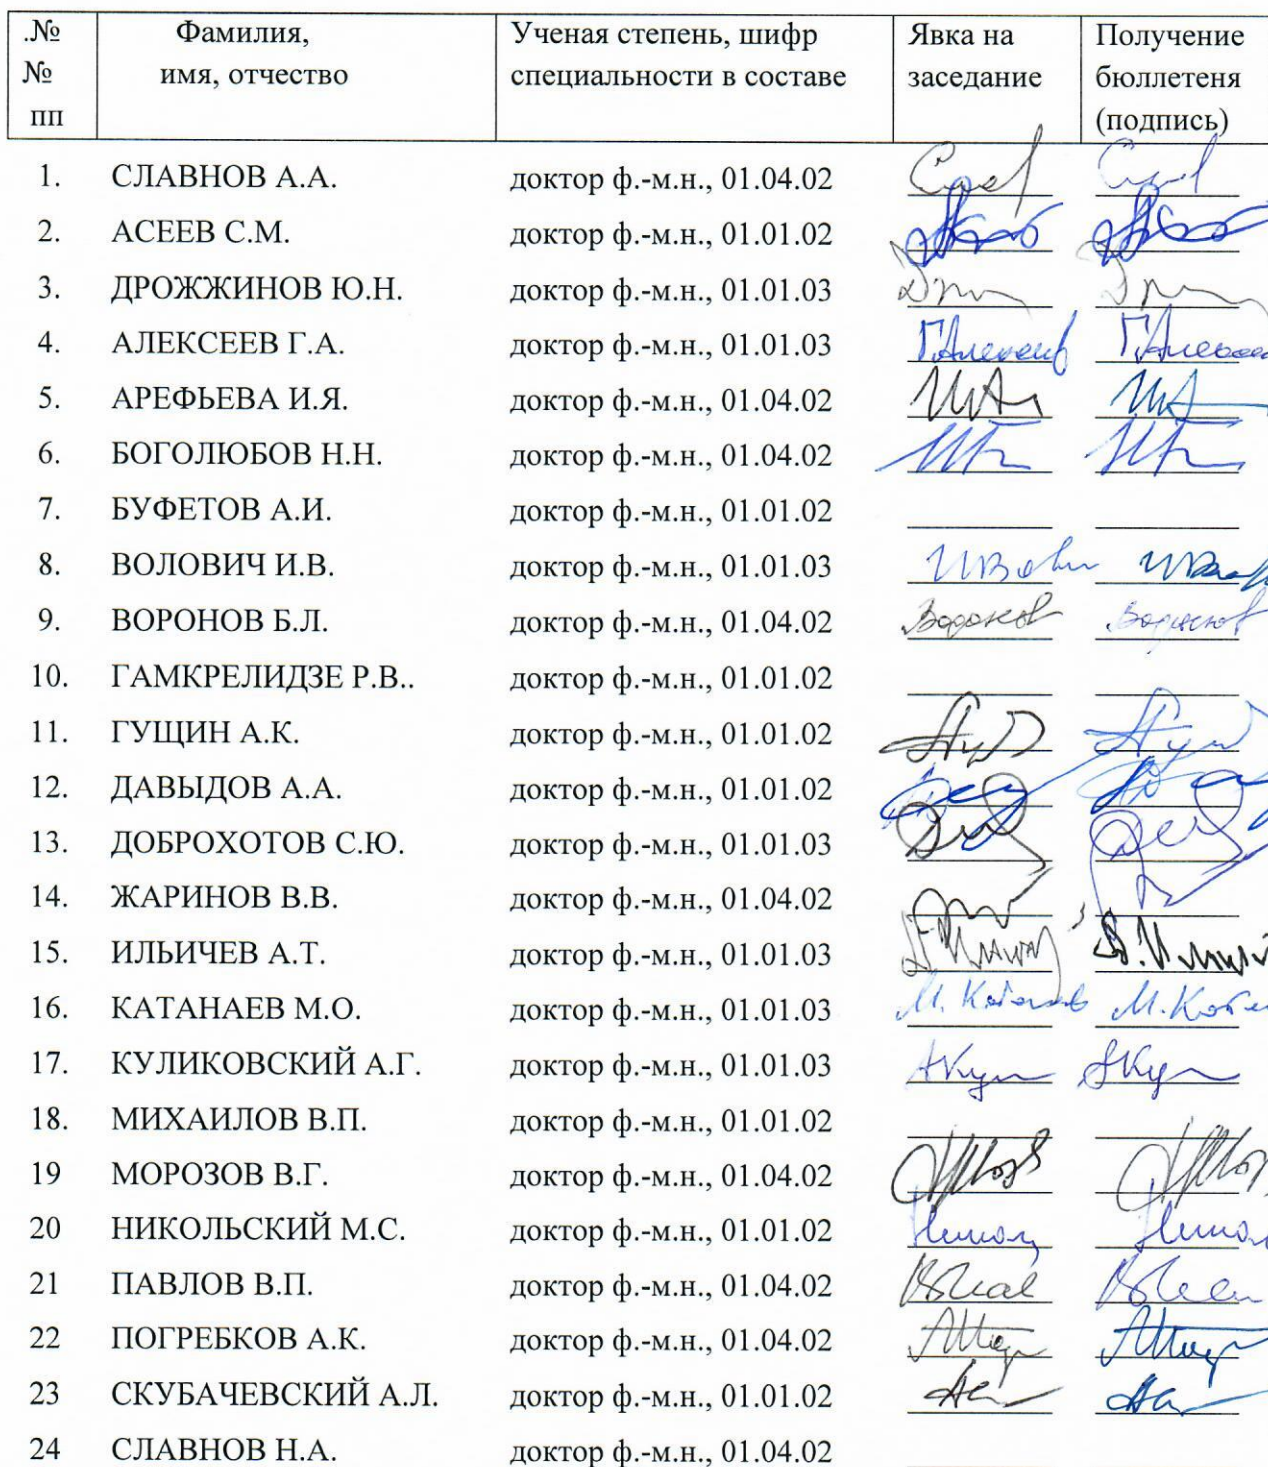 .№ Фамилия, Ученая степень, шифр Явка на Получение
№ имя, отчество специальности в составе заседание бюллетеня
пп (подпись)
1. СЛАВНОВ А.А. доктор ф.-м.н., 01.04.02
2. АСЕЕВ С.М. доктор ф.-м.н., 01.01.02
3. ДРОЖЖИНОВ Ю.Н. доктор ф.-м.н., 01.01.03
4. АЛЕКСЕЕВ Г.А. доктор ф.-м.н., 01.01.03
5. АРЕФЬЕВА И.Я. доктор ф.-м.н., 01.04.02
6. БОГОЛЮБОВ Н.Н. доктор ф.-м.н., 01.04.02
7. БУФЕТОВ А.И. доктор ф.-м.н., 01.01.02
8. ВОЛОВИЧ И.В. доктор ф.-м.н., 01.01.03
9. ВОРОНОВ Б.Л. доктор ф.-м.н., 01.04.02
10. ГАМКРЕЛИДЗЕ Р.В.. доктор ф.-м.н., 01.01.02
11. ГУЩИН А.К. доктор ф.-м.н., 01.01.02
12. ДАВЫДОВ А.А. доктор ф.-м.н., 01.01.02
13. ДОБРОХОТОВ С.Ю. доктор ф.-м.н., 01.01.03
14. ЖАРИНОВ В.В. доктор ф.-м.н., 01.04.02
15. ИЛЬИЧЕВ А.Т. доктор ф.-м.н., 01.01.03
16. КАТАНАЕВ М.О. доктор ф.-м.н., 01.01.03
17. КУЛИКОВСКИЙ А.Г. доктор ф.-м.н., 01.01.03
18. МИХАИЛОВ В.П. доктор ф.-м.н., 01.01.02
19 МОРОЗОВ В.Г. доктор ф.-м.н., 01.04.02
20 НИКОЛЬСКИЙ М.С. доктор ф.-м.н., 01.01.02
21 ПАВЛОВ В.П. доктор ф.-м.н., 01.04.02
22 ПОГРЕБКОВ А.К. доктор ф.-м.н., 01.04.02
23 СКУБАЧЕВСКИЙ А.Л. доктор ф.-м.н., 01.01.02
24 СЛАВНОВ Н.А. доктор ф.-м.н., 01.04.02